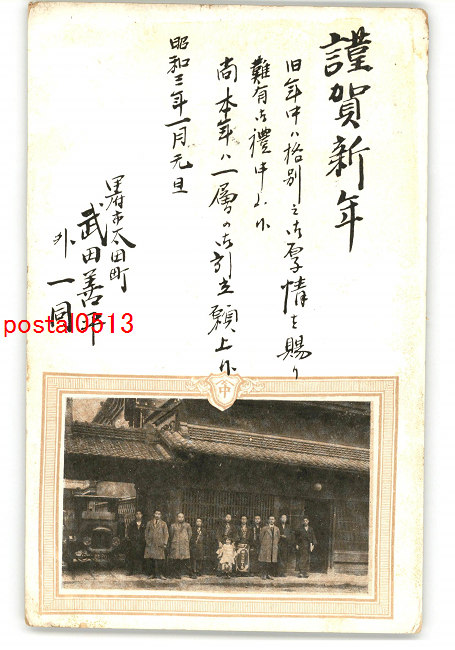 謹賀新年
旧年中ハ格別之御厚情を賜り
難有御禮申上候
尚本年ハ一層の御引立願上候
昭和三年一月元旦
甲府市太田町
武田善平
外一同
中
postal0513